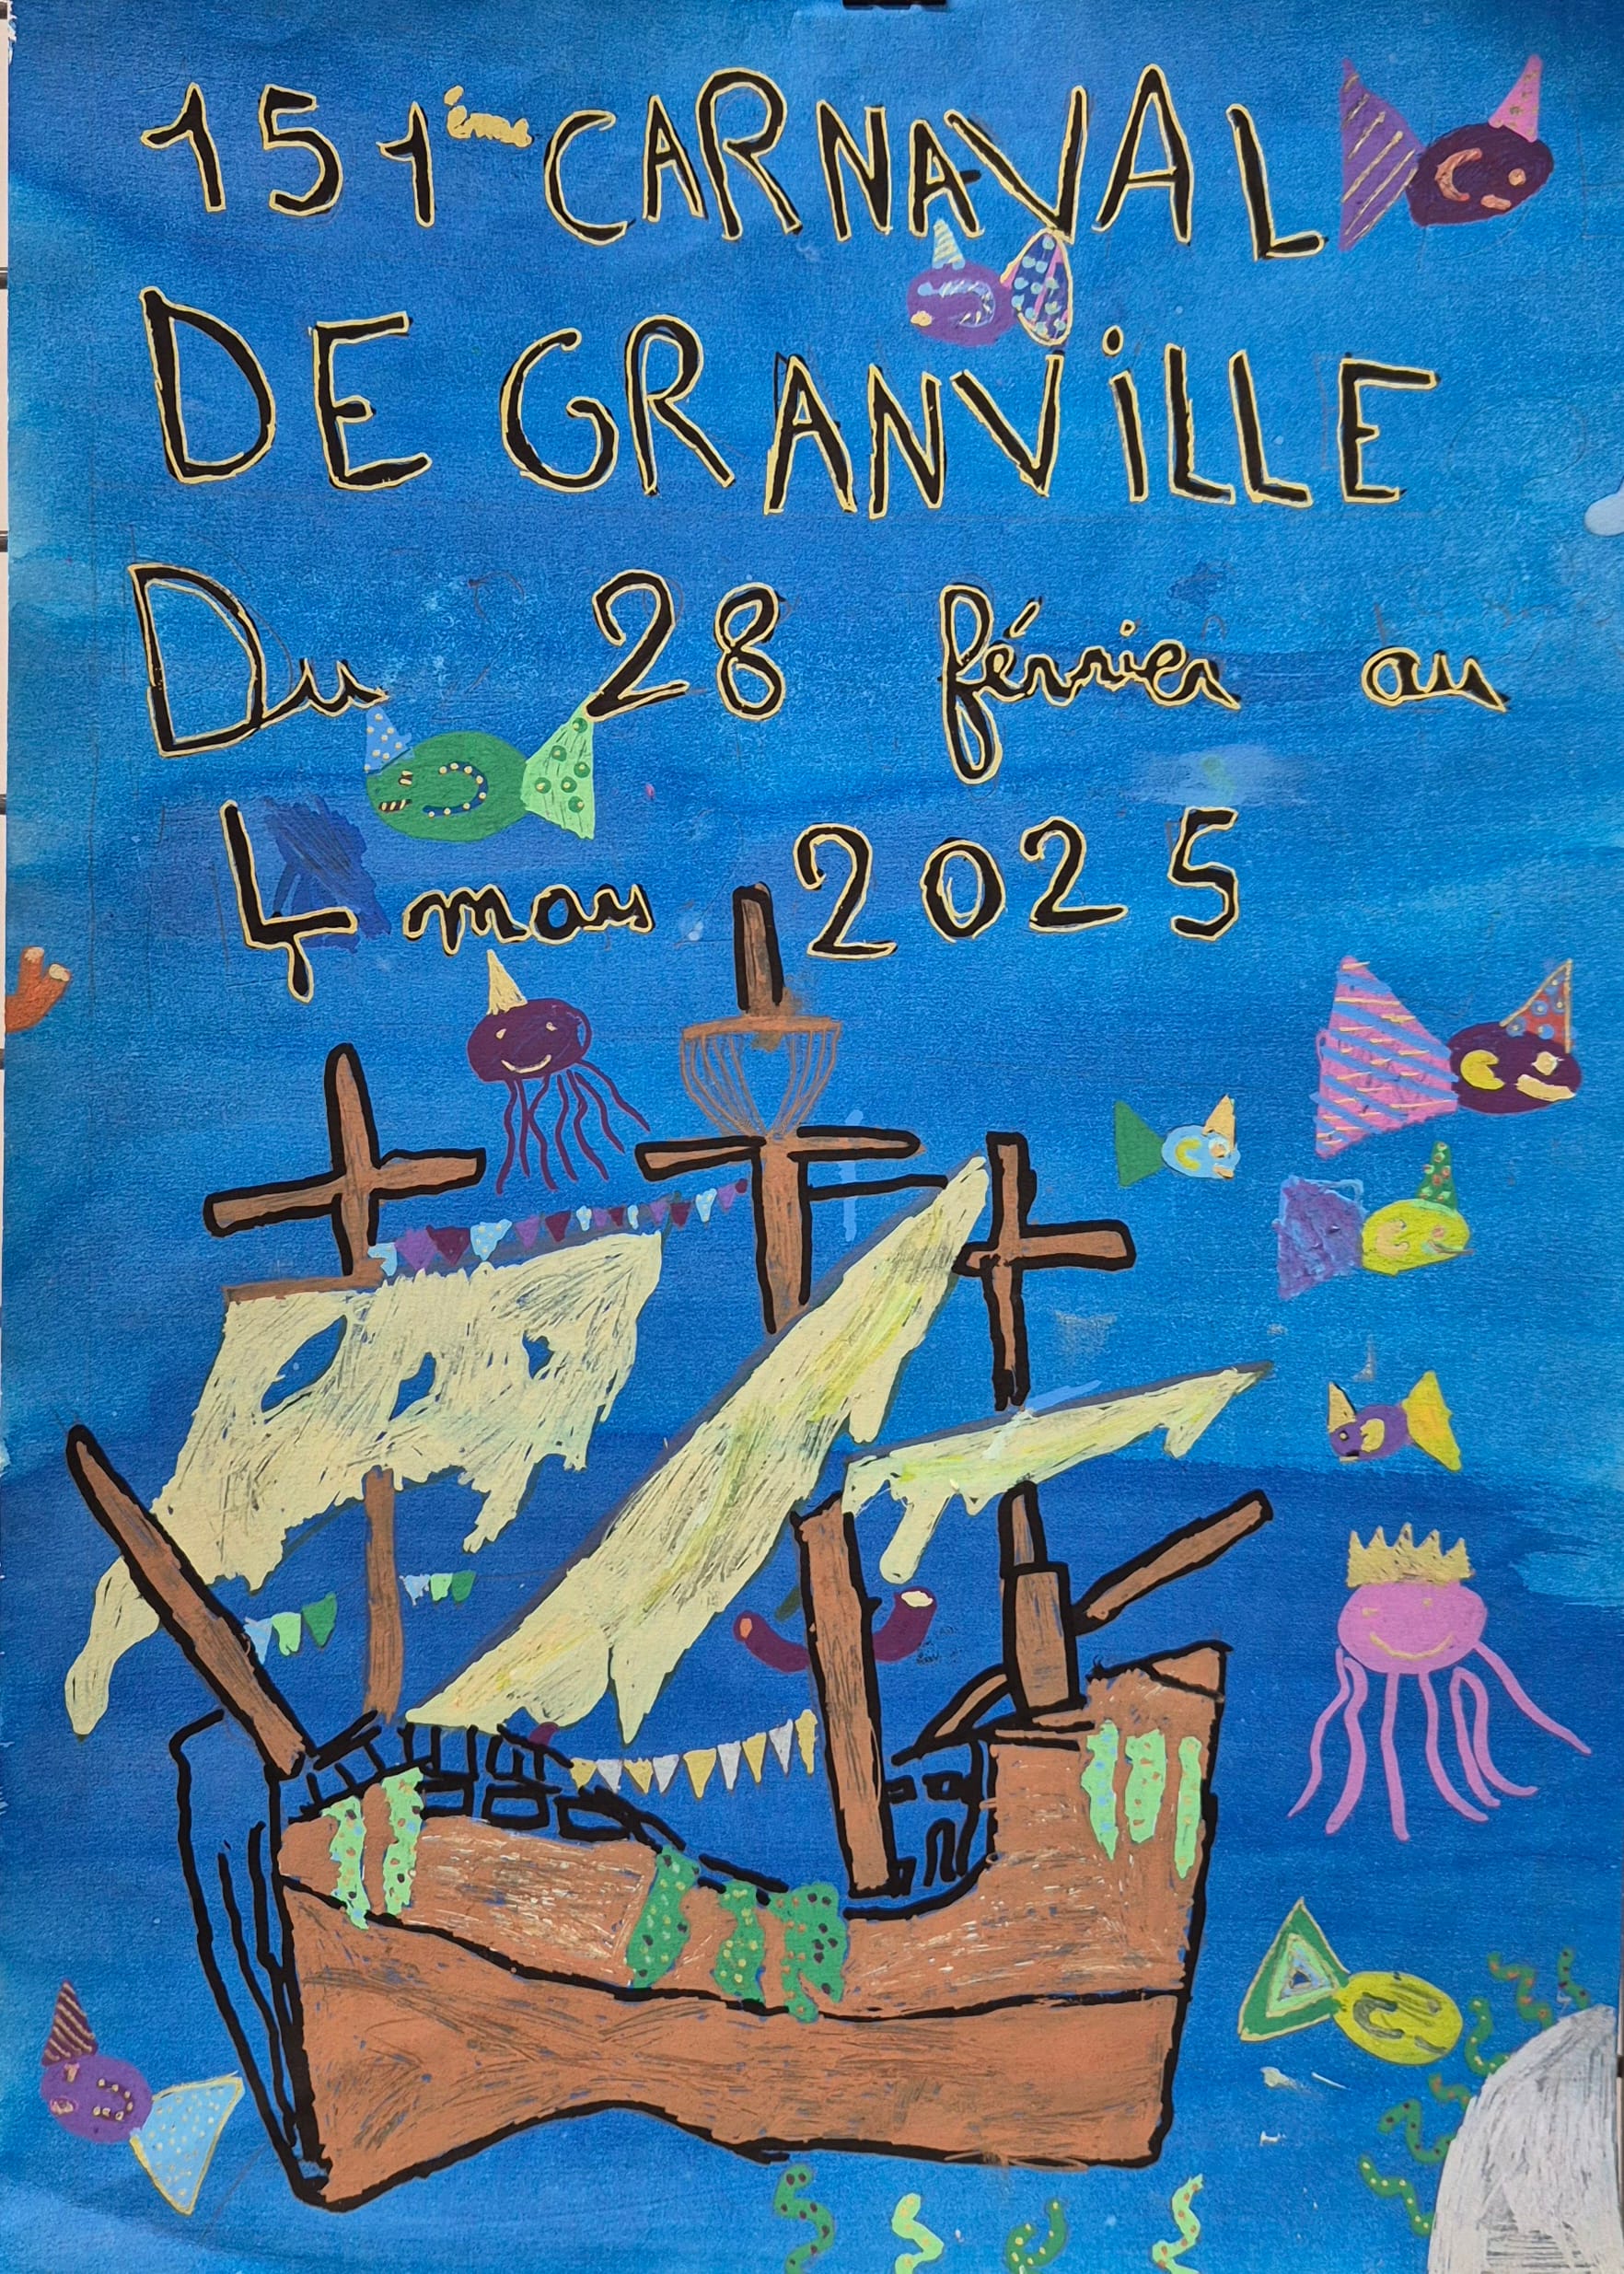 151ème CARNAVAL
DE GRANViLLE
Du 28 février au
4 mars 2025